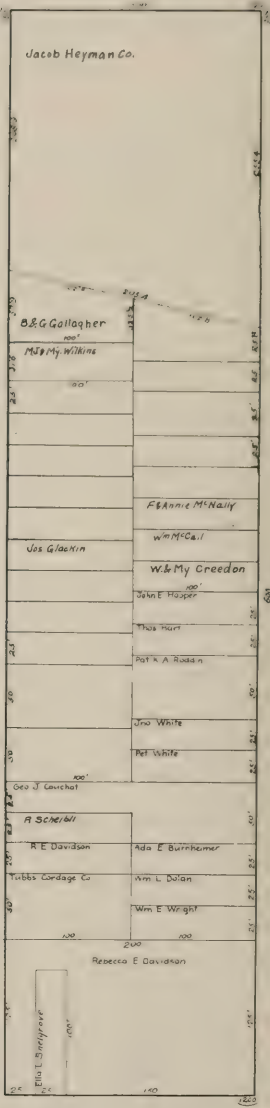 Jacob Heyman Co.
B & G Gallagher
100'
M J & My. Wilkins
25'
25'
25'
F & Annie McNally
Wm McCall
Jos Glackin
W. & My Creedon
100'
John E Hooper
25'
Thos Hart
25'
25'
50'
Jno White
25'
50'
Pet White
25'
100'
Geo J. Couchot
25'
50'
R E Davidson
Ada E Burnheimer
25'
25'
Tubbs Cordage Co
Wm L Dolan
25'
50'
Wm E Wright
25'
100
200
100
Rebecca E Davidson
Ella L Snelgrove
100'
125'
25
25
150
1200